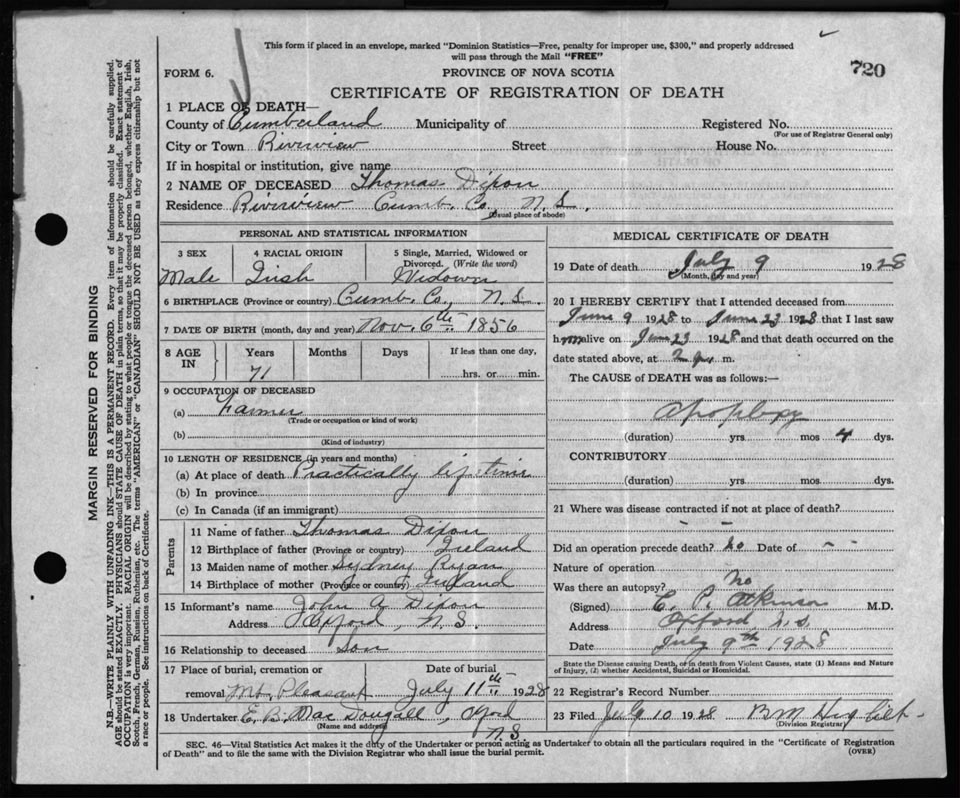 This form if placed in an envelope, marked "Dominion Statistics—Free, penalty for improper use, $300," and properly addressed
will pass through the Mail "FREE"
720
FORM 6.
PROVINCE OF NOVA SCOTIA
CERTIFICATE OF REGISTRATION OF DEATH
1 PLACE OF DEATH—
County of Cumberland Municipality of Registered No.
(For use of Registrar General only)
City or Town Riverview Street House No.
If in hospital or institution, give name
2 NAME OF DECEASED Thomas Dixon
Residence Riverview Cumb. Co. N.S.
(Usual place of abode)
PERSONAL AND STATISTICAL INFORMATION
3 SEX 4 RACIAL ORIGIN 5 Single, Married, Widowed or
Divorced. (Write the word)
Male Irish Widower
6 BIRTHPLACE (Province or country) Cumb. Co., N.S.
7 DATE OF BIRTH (month, day and year) Nov. 6th 1856
8 AGE IN Years Months Days If less than one day,
71 hrs. or min.
9 OCCUPATION OF DECEASED
(a) Farmer
(Trade or occupation or kind of work)
(b)
(Kind of industry)
10 LENGTH OF RESIDENCE (in years and months)
(a) At place of death Practically lifetime
(b) In province
(c) In Canada (if an immigrant)
Parents
11 Name of father Thomas Dixon
12 Birthplace of father (Province or country) Ireland
13 Maiden name of mother Sydney Ryan
14 Birthplace of mother (Province or country) Ireland
15 Informant's name John A. Dixon
Address Oxford, N.S.
16 Relationship to deceased Son
17 Place of burial, cremation or Date of burial
removal Mt. Pleasant July 11th 1928
18 Undertaker E. B. MacDougall, Oxford
(Name and address) N.S.
MEDICAL CERTIFICATE OF DEATH
19 Date of death July 9 1928
(Month, day and year)
20 I HEREBY CERTIFY that I attended deceased from
June 9 1928 to June 23 1928 that I last saw
him alive on June 23 1928 and that death occurred on the
date stated above, at 2 p. m.
The CAUSE OF DEATH was as follows:—
Apoplexy
(duration) yrs mos 4 dys.
CONTRIBUTORY
(duration) yrs. mos. dys.
21 Where was disease contracted if not at place of death?
– –
Did an operation precede death? No Date of – –
Nature of operation
Was there an autopsy? No
(Signed) E. P. Atkinson M.D.
Address Oxford N.S.
Date July 9th 1928
State the Disease causing Death, or in death from Violent Causes, state (1) Means and Nature
of Injury, (2) whether Accidental, Suicidal or Homicidal.
22 Registrar's Record Number
23 Filed July 10 1928 B M
(Division Registrar)
SEC. 46—Vital Statistics Act makes it the duty of the Undertaker or person acting as Undertaker to obtain all the particulars required in the "Certificate of Registration
of Death" and to file the same with the Division Registrar who shall issue the burial permit. (OVER)
MARGIN RESERVED FOR BINDING
N.B.—WRITE PLAINLY WITH UNFADING INK—THIS IS A PERMANENT RECORD. Every item of information should be carefully supplied.
AGE should be stated EXACTLY. PHYSICIANS should STATE CAUSE OF DEATH in plain terms, so that it may be properly classified. Exact statement of
OCCUPATION is very important. RACIAL ORIGIN will be described by stating to what people or tongue the deceased person belonged, whether English, Irish,
Scotch, French, German, Russian, Ruthenian, etc. The terms "AMERICAN" or "CANADIAN" SHOULD NOT BE USED as they express citizenship but not
a race or people. See instructions on back of Certificate.